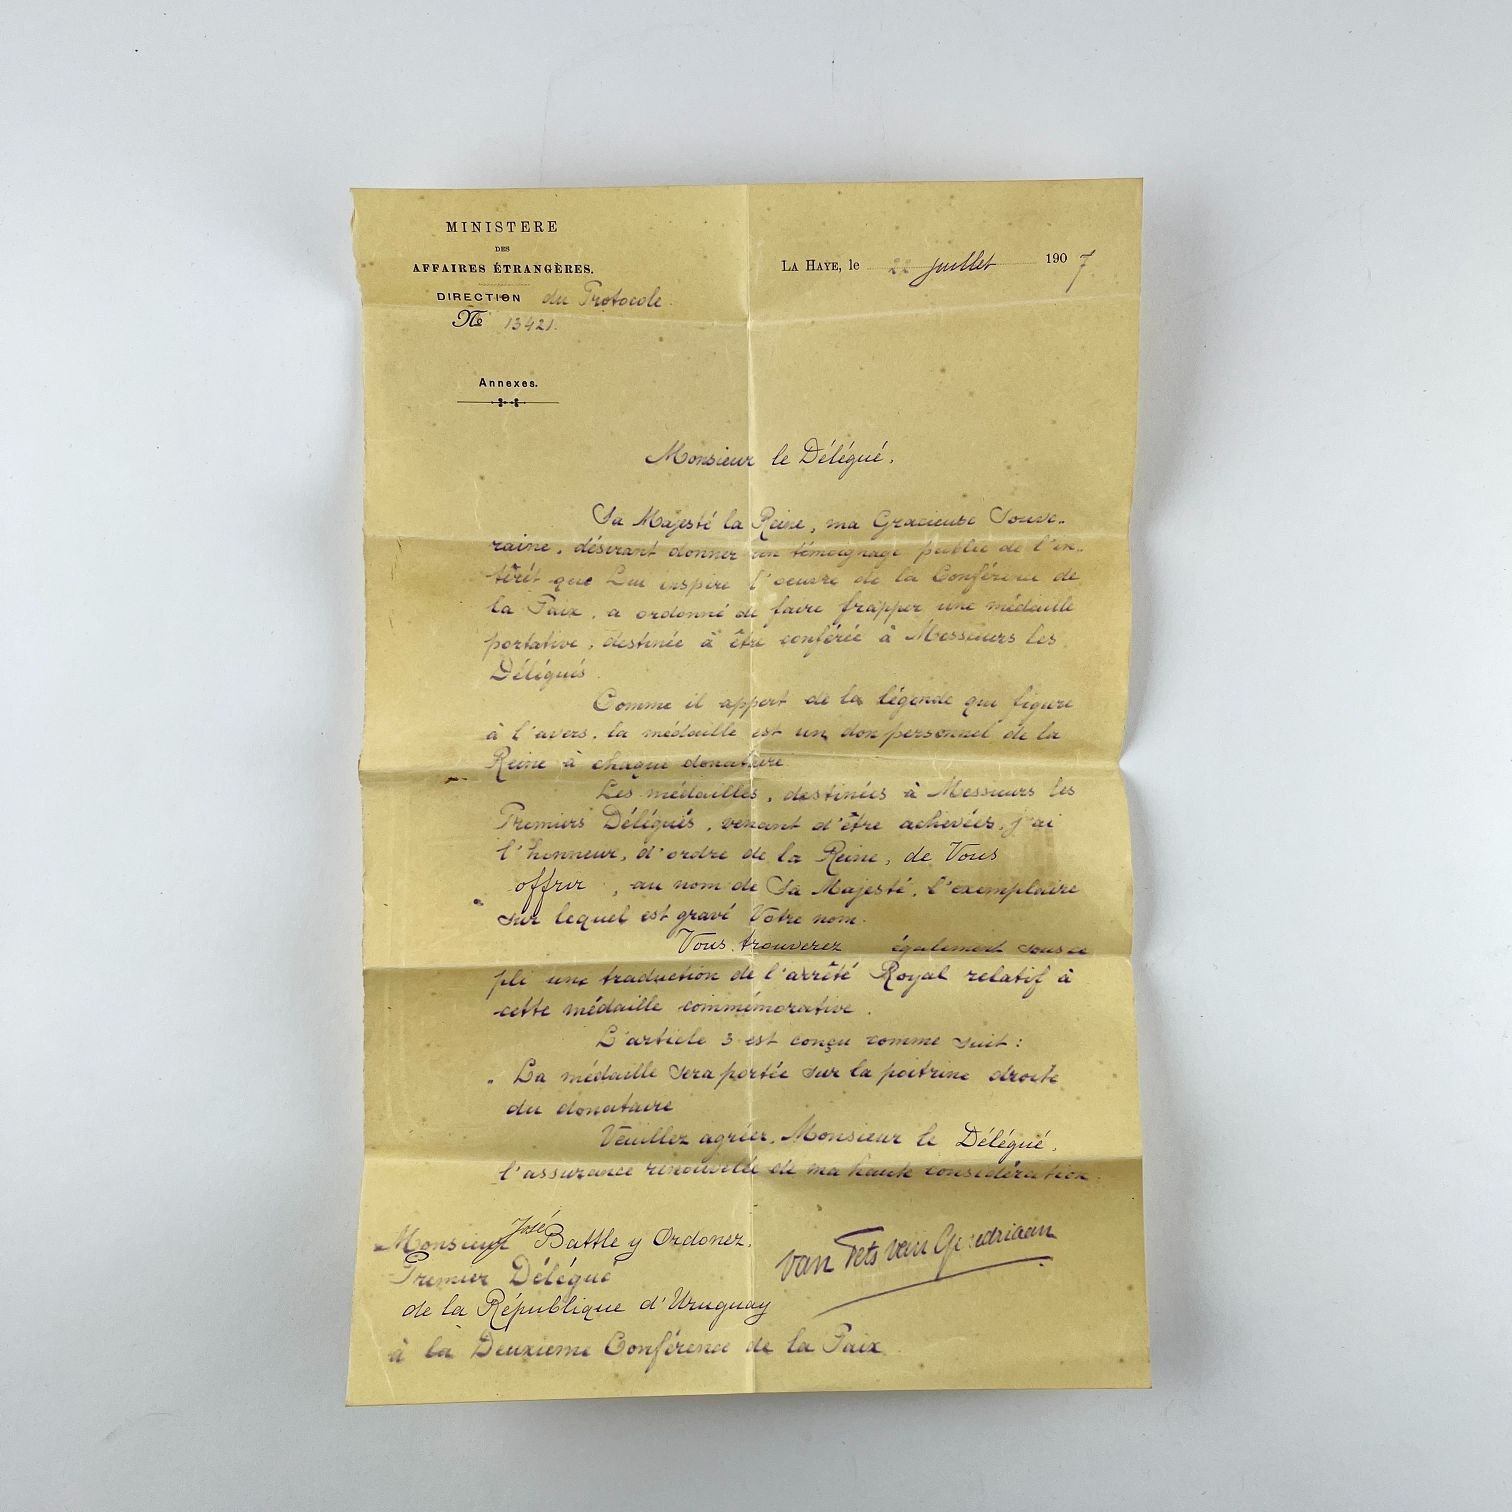 MINISTERE
DES
AFFAIRES ÉTRANGÈRES.
DIRECTION du Protocole.
No 13421.
Annexes.
LA HAYE, le 22 juillet 1907.
Monsieur le Délégué,
Sa Majesté la Reine, ma Gracieuse Souve-
raine, désirant donner un témoignage public de l'in-
térêt que Lui inspire l'oeuvre de la Conférence de
la Paix, a ordonné de faire frapper une médaille
portative, destinée à être conférée à Messieurs les
Délégués.
Comme il appert de la légende qui figure
à l'avers, la médaille est un don personnel de la
Reine à chaque donataire.
Les médailles, destinées à Messieurs les
Premiers Délégués, venant d'être achevées, j'ai
l'honneur, d'ordre de la Reine, de Vous
offrir, au nom de Sa Majesté, l'exemplaire
sur lequel est gravé Votre nom.
Vous trouverez également sous ce
pli une traduction de l'arrêté Royal relatif à
cette médaille commémorative.
L'article 3 est conçu comme suit:
„La médaille sera portée sur la poitrine droite
du donataire
Veuillez agréer, Monsieur le Délégué,
l'assurance renouvelée de ma haute considération.
van Tets van Goudriaan
Monsieur José Battle y Ordonez,
Premier Délégué
de la République d'Uruguay
à la Deuxième Conférence de la Paix.